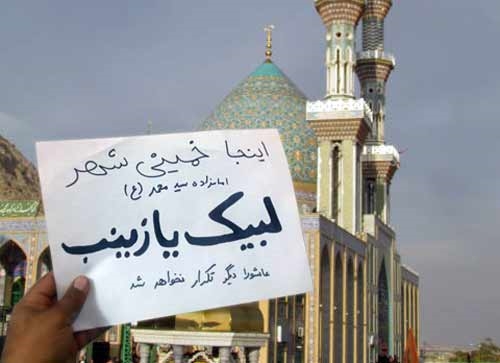 اینجا خمینی شهر
امامزاده سید محمد (ع)
لبیک یا زینب
عاشورا دیگر تکرار نخواهد شد